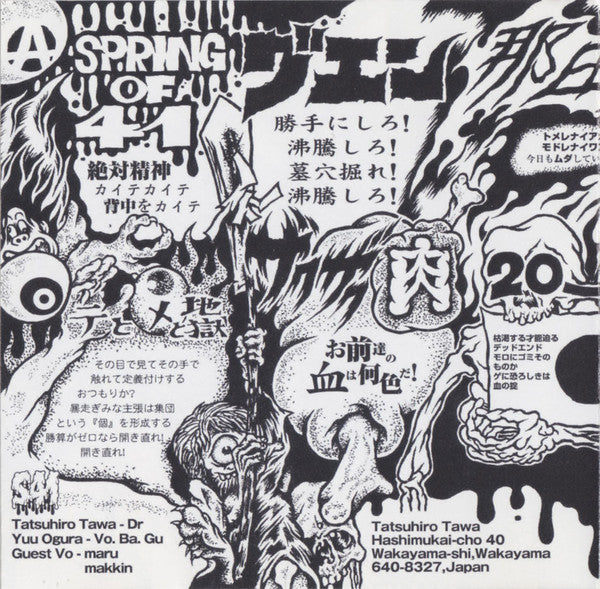 A
SPRING
OF
41
ヴエン
那
絶対精神
カイテカイテ
背中をカイテ
勝手にしろ!
沸騰しろ!
墓穴掘れ!
沸騰しろ!
トメレナイア
モドレナイワ
今日もムダしてい
テとメと地獄
その目で見てその手で
触れて定義付けする
おつもりか?
暴走ぎみな主張は集団
という『個』を形成する
勝算がゼロなら開き直れ!
開き直れ!
肉
お前達の
血は何色だ!
20
枯渇する才能迫る
デッドエンド
モロにゴミその
ものか
ゲに恐ろしきは
血の掟
S41
Tatsuhiro Tawa - Dr
Yuu Ogura - Vo. Ba. Gu
Guest Vo - maru
makkin
Tatsuhiro Tawa
Hashimukai-cho 40
Wakayama-shi,Wakayama
640-8327,Japan